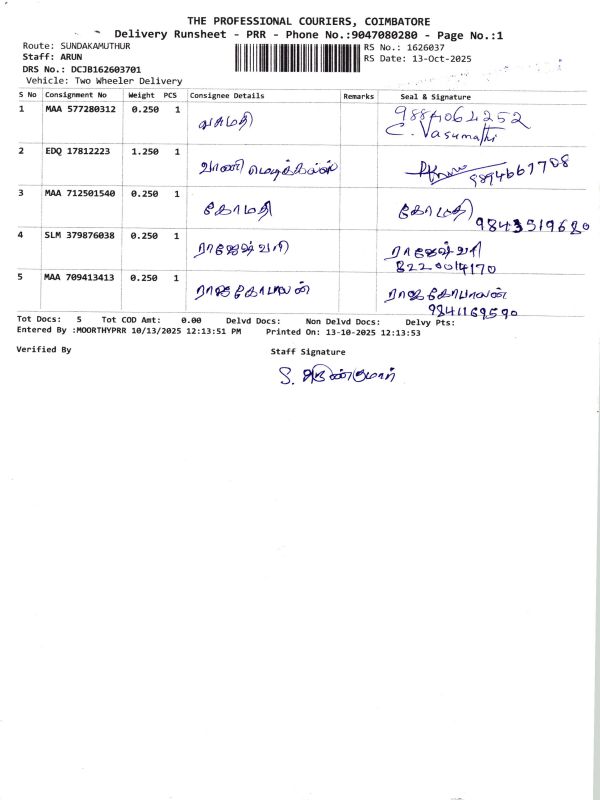 THE PROFESSIONAL COURIERS, COIMBATORE
Delivery Runsheet - PRR - Phone No.:9047080280 - Page No.:1
Route: SUNDAKAMUTHUR
RS No.: 1626037
Staff: ARUN
RS Date: 13-Oct-2025
DRS No.: DCJB162603701
Vehicle: Two Wheeler Delivery
S No Consignment No Weight PCS Consignee Details Remarks Seal & Signature
1 MAA 577280312 0.250 1 வசுமதி 9884064252
C. Vasumathi
2 EDQ 17812223 1.250 1 வாணி மெடிக்கல்ஸ் 9894667708
3 MAA 712501540 0.250 1 கோமதி கோமதி
9843519680
4 SLM 379876038 0.250 1 ராஜேஷ்வரி ராஜேஷ்வரி
8220014170
5 MAA 709413413 0.250 1 ராஜகோபாலன் ராஜகோபாலன்
9841169590
Tot Docs: 5 Tot COD Amt: 0.00 Delvd Docs: Non Delvd Docs: Delvy Pts:
Entered By :MOORTHYPRR 10/13/2025 12:13:51 PM Printed On: 13-10-2025 12:13:53
Verified By Staff Signature
S. அருண்குமார்